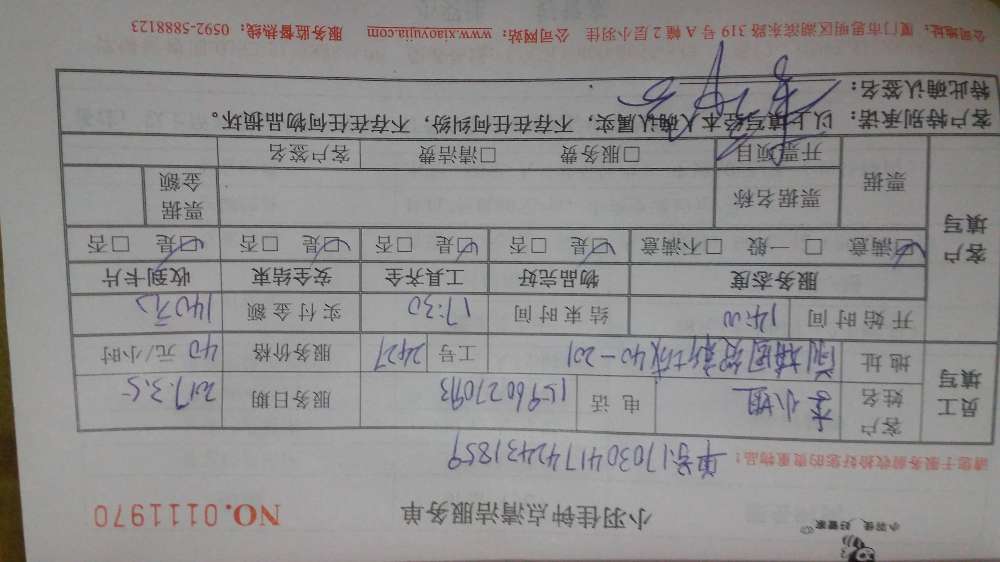 小羽佳 好管家
小羽佳钟点清洁服务单 NO.0111970
请您于服务前收拾好您的贵重物品! 单号:170304174243 1859
员工填写 客户姓名 李小姐 电话 1596027093 服务日期 2017.3.5
地址 40-201 工号 2427 服务价格 40 元/小时
开始时间 14:00 结束时间 17:30 实付金额 140元
客户填写 服务态度 物品完好 工具齐全 安全结束 收到卡片
☑满意 □一般 □不满意 ☑是 □否 ☑是 □否 ☑是 □否 ☑是 □否
票据 票据名称 票据金额
开票项目 □服务费 □清洁费 客户签名
客户特别承诺:以上填写经本人确认,实属,不存在任何纠纷,不存在任何物品损坏。
特此确认签名:
公司地址:厦门市思明区湖滨东路 319 号 A 幢 2 层小羽佳 公司网站:www.xiaoyujia.com 服务监督热线:0592-5888123